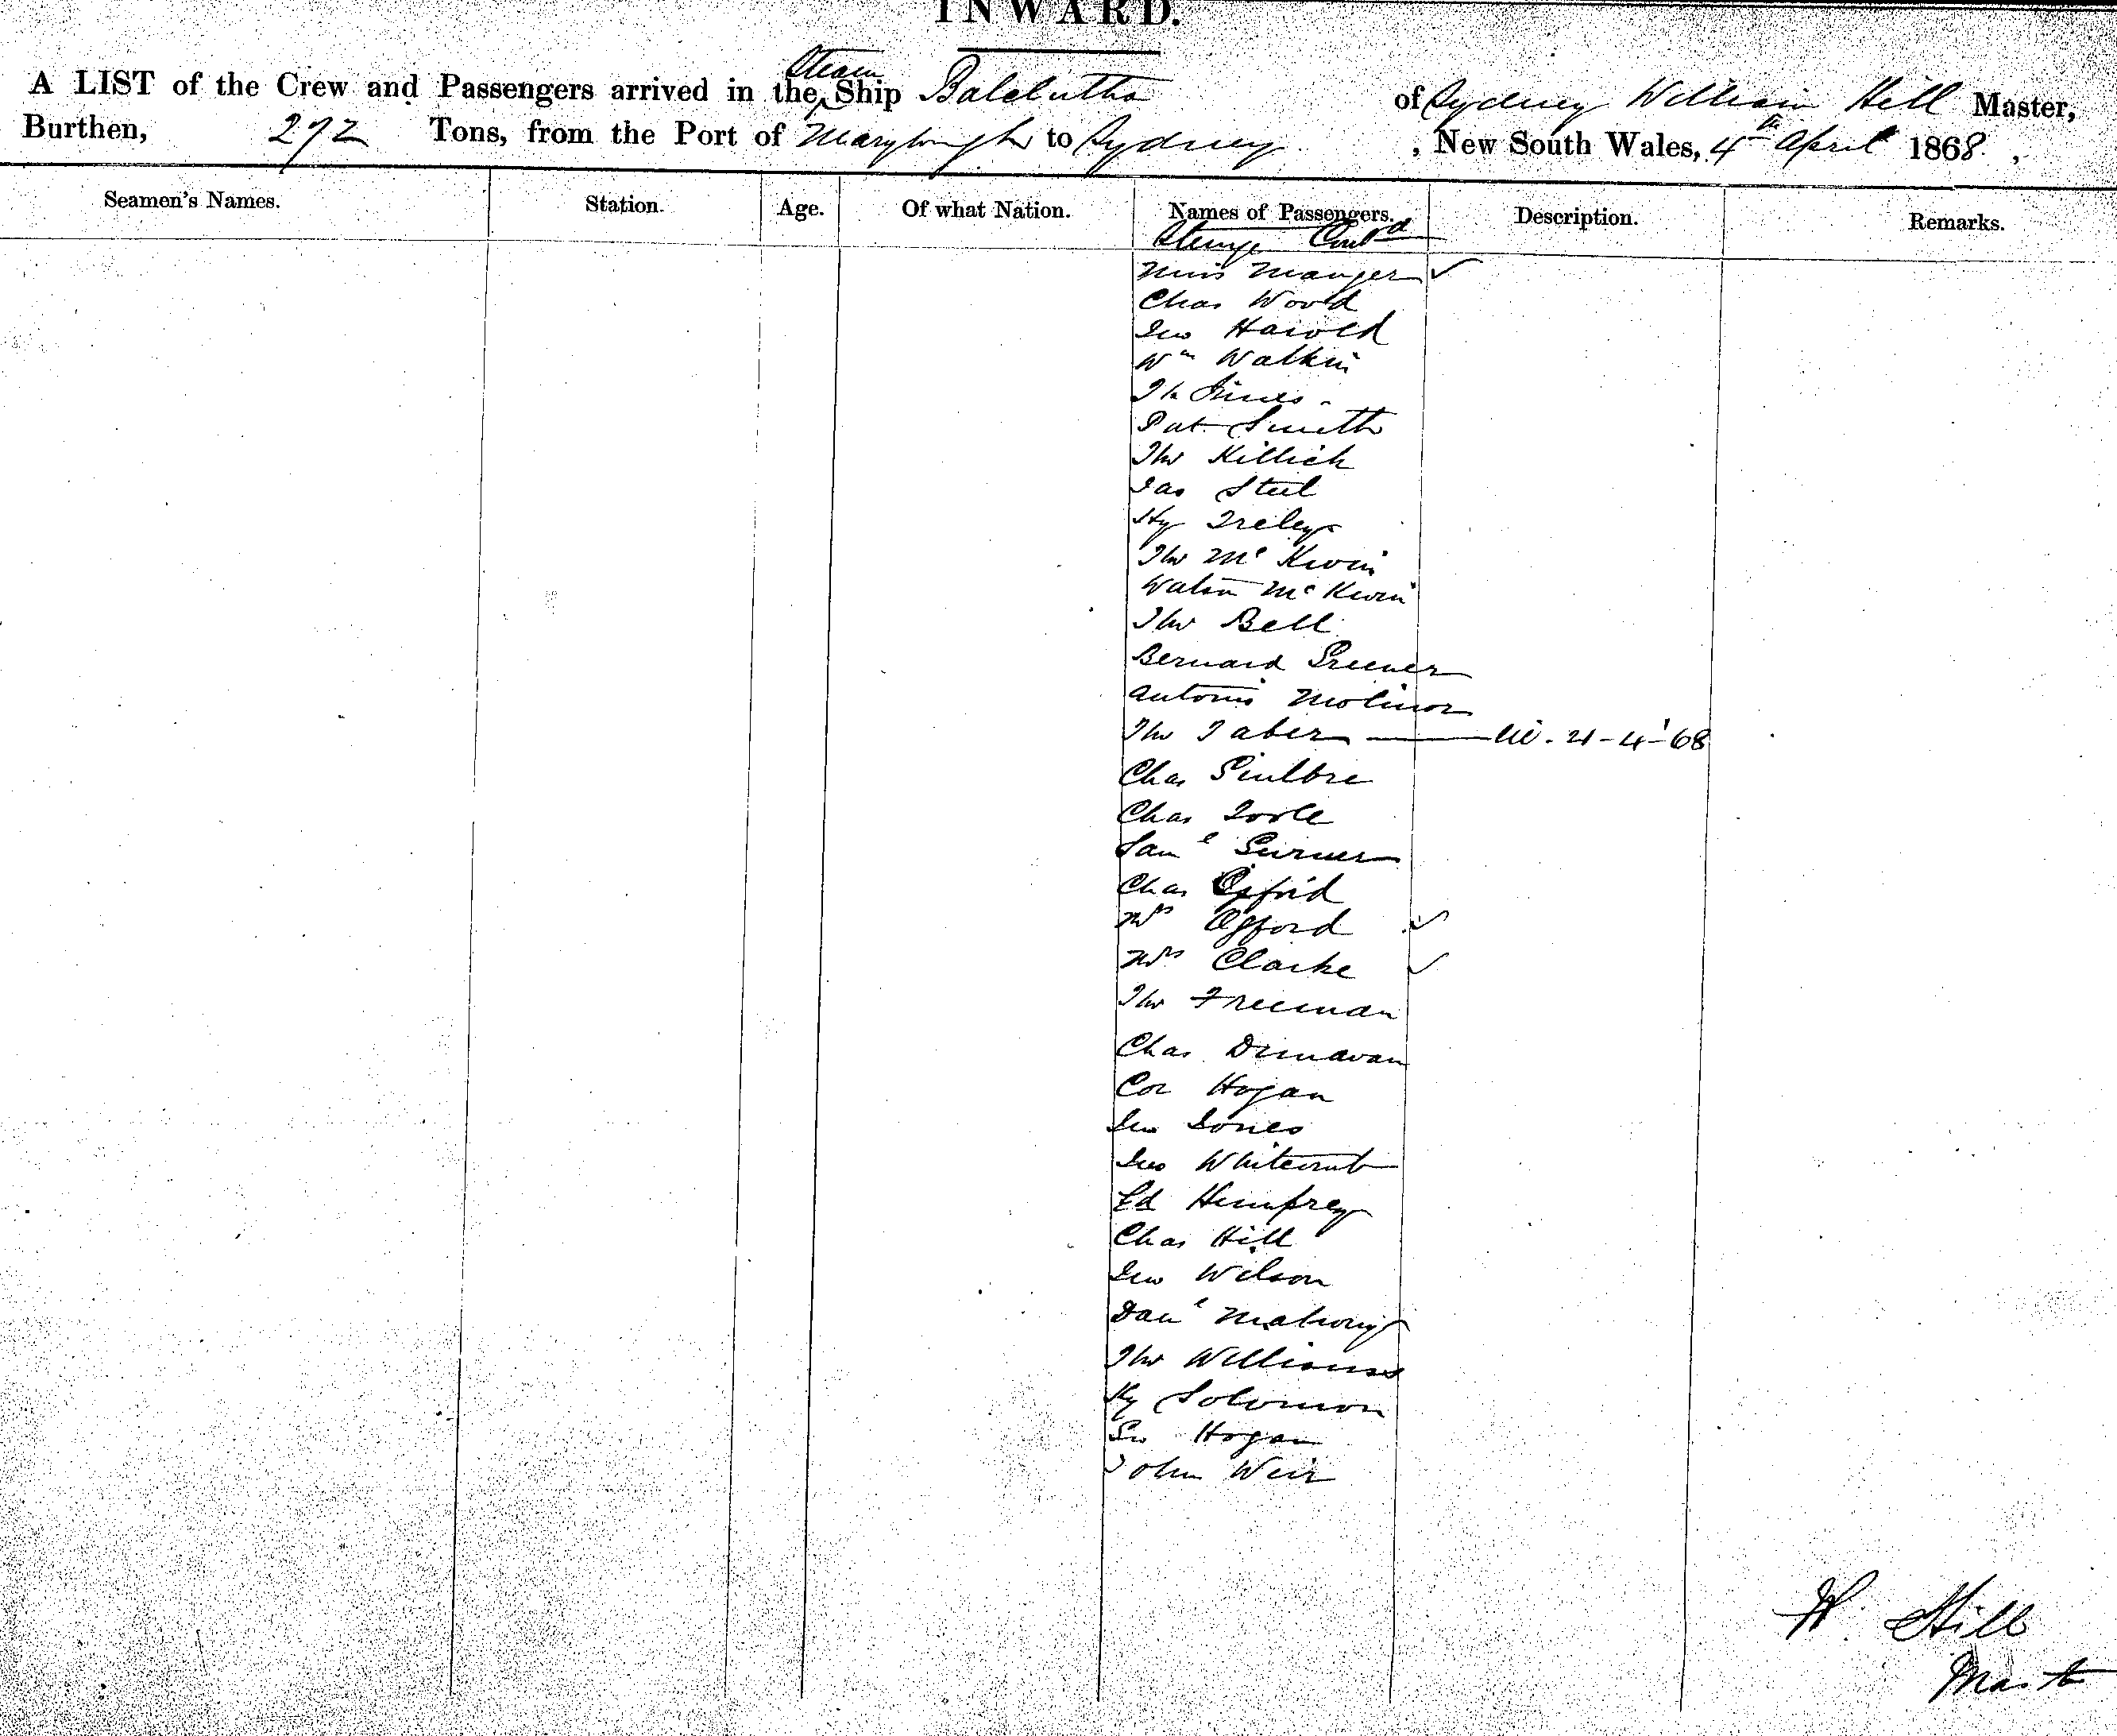 INWARD.
A LIST of the Crew and Passengers arrived in the Steam Ship Balclutha of Sydney William Hill Master,
Burthen, 272 Tons, from the Port of Marybrough to Sydney , New South Wales, 4th April 1868 ,
Seamen's Names. Station. Age. Of what Nation. Names of Passengers. Description. Remarks.
Steerage Contd
Miss Manger ✓
Chas Wood
Geo Harold
Wm Watkin
Pat Smith
Thos Killick
Jas Steel
Hy
Thos Mc
Watson Mc
Thos Bell
Bernard
Antonio
Thos Taber 21-4-'68
Chas
Chas Toole
Saml
Chas Offord
Mrs Offord ✓
Mrs Clarke ✓
Thos Freeman
Chas Dunavan
Cor Hogan
Jno Jones
Jno Whitcomb
Ed Humfrey
Chas Hill
Jno Wilson
Danl
Thos Williams
Hy Solomon
Geo Hogan
John Weir
W. Hill
Master